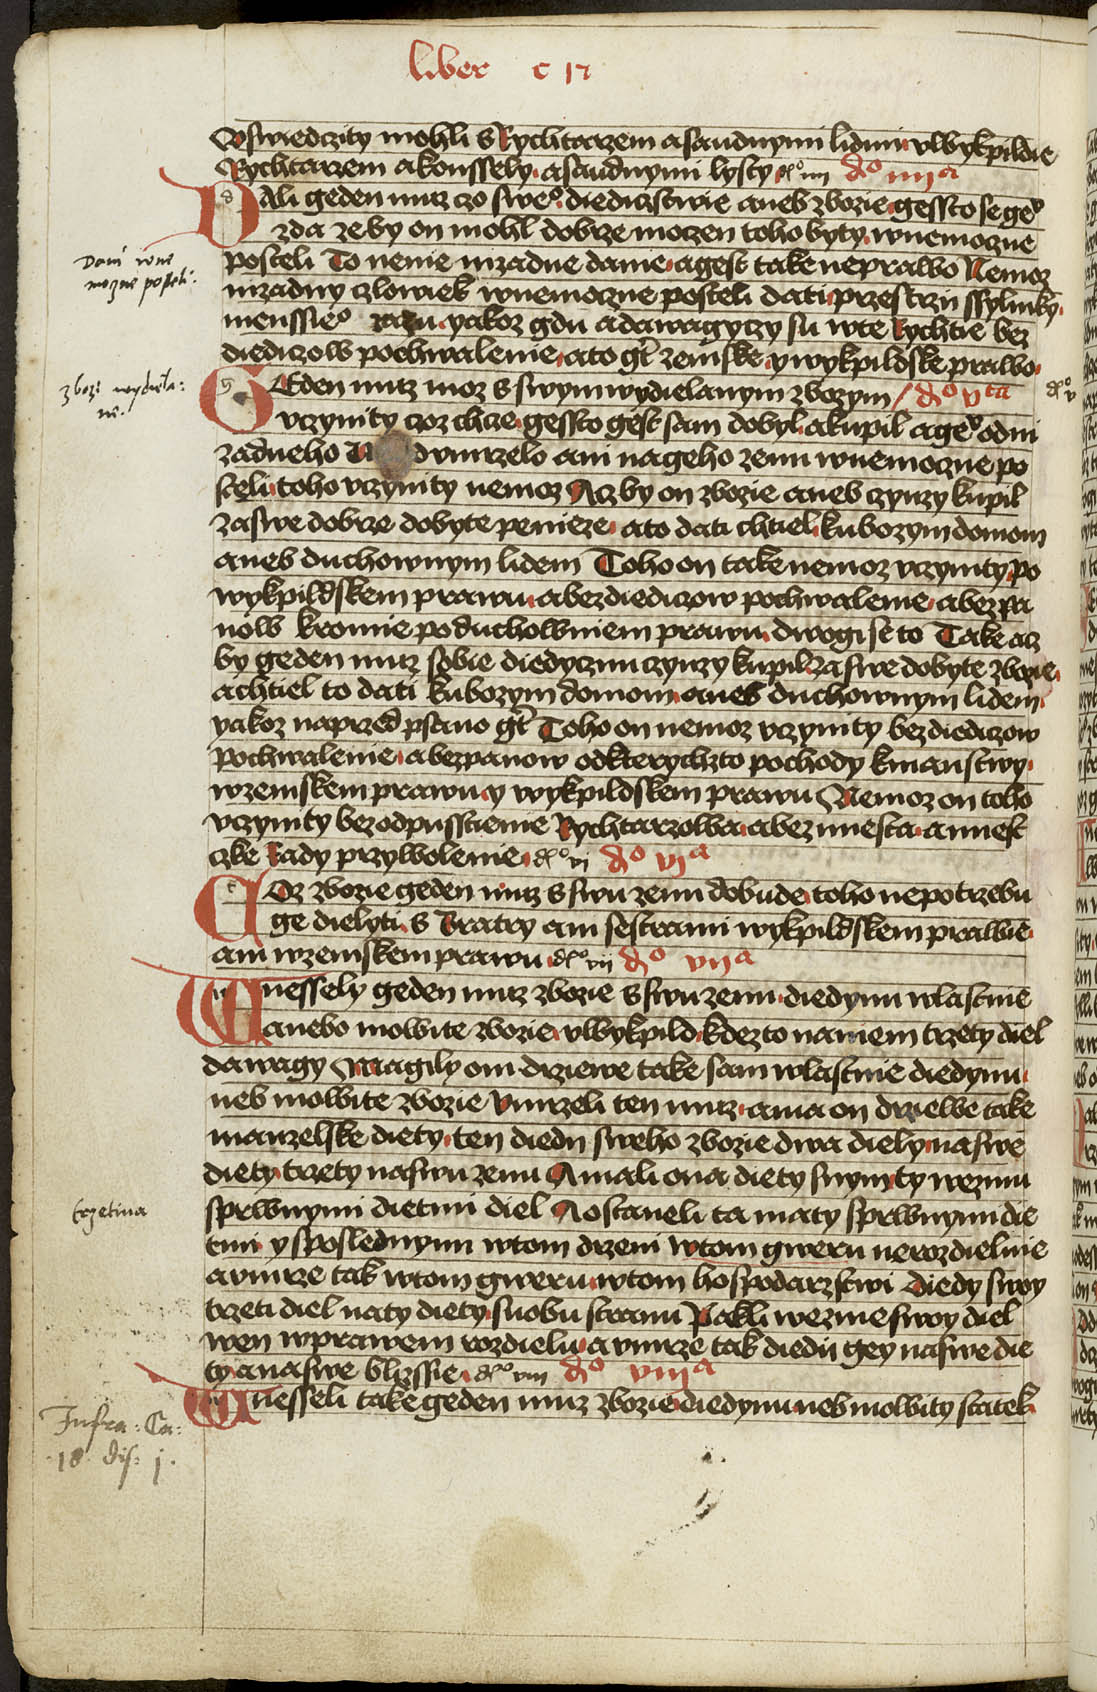 liber c 17
Oswiedczity mohli s Rychtarzem a saudnymi lidmi vWykpildie
Rychtarzem a konssely a saudnymi lysty do iiii do iiiia
DAli geden muz czo swe° diedicztwie aneb zbozie gessto se ge°
zda zeby on mohl dobrze moczen toho byty wnemoczne
posteli To nenie mzadne danie a gest take neprawo Nemoz
mzadny czlowiek wnemoczne posteli dati przes trzii ssylinky
menssie° razu yakoz gdu a dawagyczy su wte Rychtie bez
diediczow pochwalenie a to gt zemske y wykpildske prawo
GEden muz moz s swym wydielanym zbozym do vta
vczynity czoz chcze gessto gest sam dobyl a kupil a ge° od ni
zadneho d vmrzelo ani na geho zenu wnemoczne po
steli toho vczynity nemoz Acz by on zbozie aneb czynzy kupil
za swe dobrze dobyte penieze a to dati chtiel kubozym domom
aneb duchownym lidem Toho on take nemoz vczynity po
wykpildskem prawu a bez diediczow pochwalenie a bez pa
now kromie po duchowniem prawu diwogi st to Take acz
by geden muz sobie diedycznu czynzy kupil za swe dobyte zbozie
a chtiel to dati kubozym domom aneb duchownym lidem
yakoz naprzed psano gt Toho on nemoz vczynity bez diediczow
pochwalenie a bez panow od kterychzto pochody kmanstwy
wzemskem prawu y wykpildskem prawu Nemoz on toho
vczynity bez odpusstienie Rychtarzowa a bez miesta a miest
czke Rady przywolenie do vi do via
COz zbozie geden muz s swu zenu dobude toho nepotrzebu
ge dielyti s Bratry ani sestrami wykpildskem prawie
ani wzemskem prawu do vii do viia
Wnessely geden muz zbozie s swu zenu diedynu wlastnie
anebo mowite zbozie vWykpild kdezto naniem trzety diel
dawagy Magily oni drziewe take sam wlastnie diedynu
neb mowite zbozie Vmrzeli ten muz a ma on drziewe take
manzelske diety ten diedii sweho zbozie dwa diely na swe
diety trzety na swu zenu A mali ona diety s nym ty wezmu
s prwnymi dietmi diel A ostaneli ta maty s prwnymi die
tmi y s poslednymi wtom drzeni wtom gweru nerozdielnie
a vmrze tak wtom gweru wtom hospodarzstwi diedy swoy
trzeti diel na ty diety s uobu stranu Pakli wezme swoy diel
wen wprawem rozdielu a vmrze tak diedii gey na swe die
ty a na swe blizssie do viii do viiia
Wnesseli take geden muz zbozie diedynu neb mowity statek
Dani wne
mozne posteli:
zbozi wydiela:
ne.
do v
trzetina
Infra: Ca:
18 dis: j.